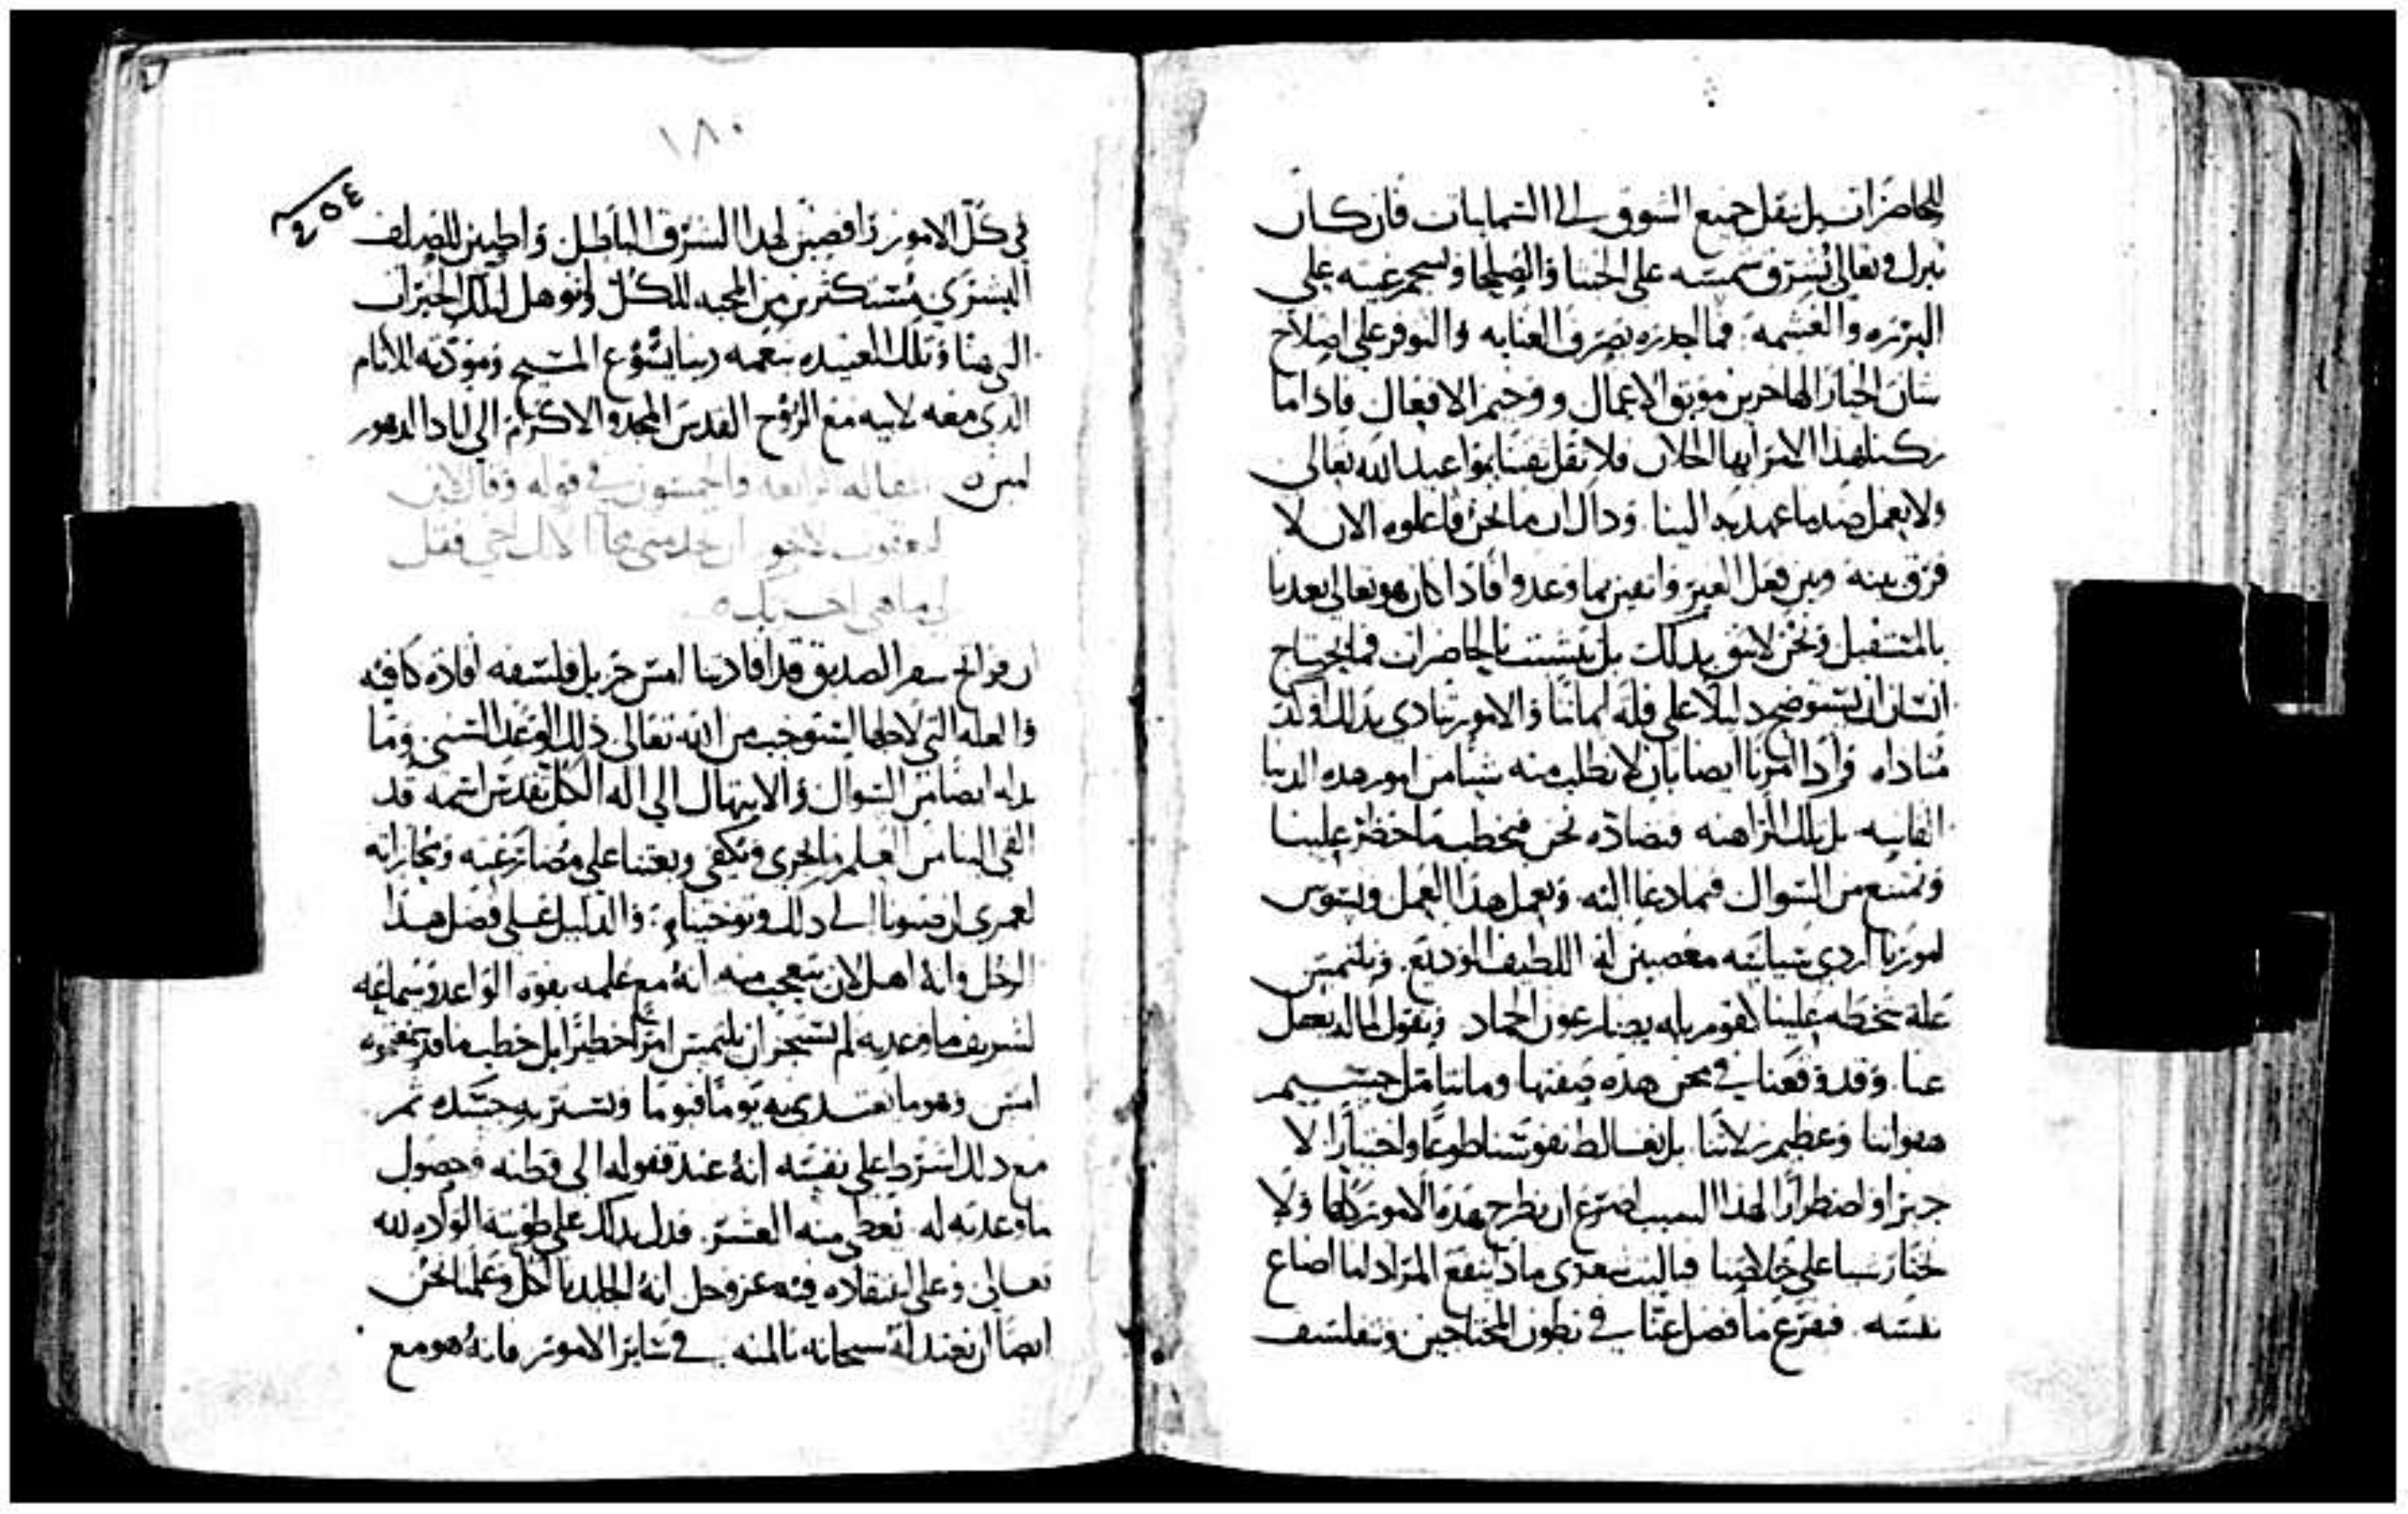 للحاضرات بل ننقل جميع الشوق الى السمايات فان كان
تبرك وتعالى يشرق شمسه على الخبثا والصلحا ويسحم غيثه على
البرره والغشمه فما اجدره بصرف العنايه والتوفر على اصلاح
شان الاخيار الهاجرين موبق الاعمال ووخيم الافعال فاذا ما
ركنا لهذا الامر ايها الخلان فلا نقل بمواعيد الله تعالى
ولا نعمل ضد ما عهد به الينا وذاك ان ما نحن فاعلوه الان لا
فرق بينه وبين فعل الغير واثقين بما وعدوا فاذا كان هو تعالى يعدنا
بالمستقبل ونحن لا نثق بذلك بل نتشبث بالحاضرات فما يحتاج
انسان ان يستوضح دليلا على قلة ايماننا والامور تنادي بذلك اوكد
مناداه واذا امرنا ايضا بان لا نطلب منه شيا من امور هذه الدنيا
الفانيه بل تلك الراهنه فنضاده نحن فنخطب ما حظر علينا
ونمتنع من السوال فيما دعا اليه ونعمل هذا العمل ونسوس
امورنا اردى سياسه مغضبين له اللطيف الوديع ونلتمس
علة سخطه علينا
عنا وقد وقعنا في محن هذه صفتها وما نتامل جسيم
هفواتنا وعظيم زلاتنا بل نغالط نفوسنا طوعا واختيارا لا
جبرا واضطرارا لهذا السبب اضرع ان نطرح هذه الامور كلها ولا
نختار شيا على خلاصنا فياليت شعري ماذا ينفع المرء اذا ما اضاع
نفسه فنفرغ ما فضل عنا في بطون المحتاجين ونفلسف
١٨٠
٤٥٤
في كل الامور رافضين لهذا السرف الباطل واطيين للصلف
البشري مستكثرين من المحبه للكل لنوهل لتلك الخيرات
التي هنا وتلك العتيده بنعمه ربنا يسوع المسيح ومودته للانام
الذي معه لابيه مع الروح القدس المجد والاكرام الى اباد الدهور
امين ه المقاله الرابعه والخمسون في قوله وقال لابن
ليعقوب لاجو ان خدمتني مجانا لانك اخي فقل
لي ما هي اجرتك ه
ان فواتح سفر الصديق قد افادتنا امس جزيل فلسفه افاده كافيه
والعله التي لاجلها استوجب من الله تعالى ذلك الوعد السني وما
بدله ايضا من السوال والابتهال الى اله الكل تقدس اسمه قد
القى الينا من العلم ما يجزي ويكفي وبعثنا على مضارعته ومجاراته
لعمري ان صبونا الى ذلك وتوخيناه والدليل على فضل هذا
الرجل وانه اهل لان يتعجب منه انه مع علمه بقوه الواعد وسماعه
لشريف ما وعد به لم يستجز ان يلتمس امرا خطيرا بل خطب ما قد سمعتموه
امس وهو ما يغتدي به يوما فيوما ويستر به جسده ثم
مع ذلك اشترط على نفسه انه عند قفوله الى وطنه وحصول
ما وعد به له يعطي منه العشر فدل بذلك على طويته الوادّه لله
تعالى وعلى اعتقاده فيه عز وجل انه الجالد با لكل وعلمنا نحن
ايضا ان نعتد له سبحانه بالمنه في سائر الامور فانه هو مع